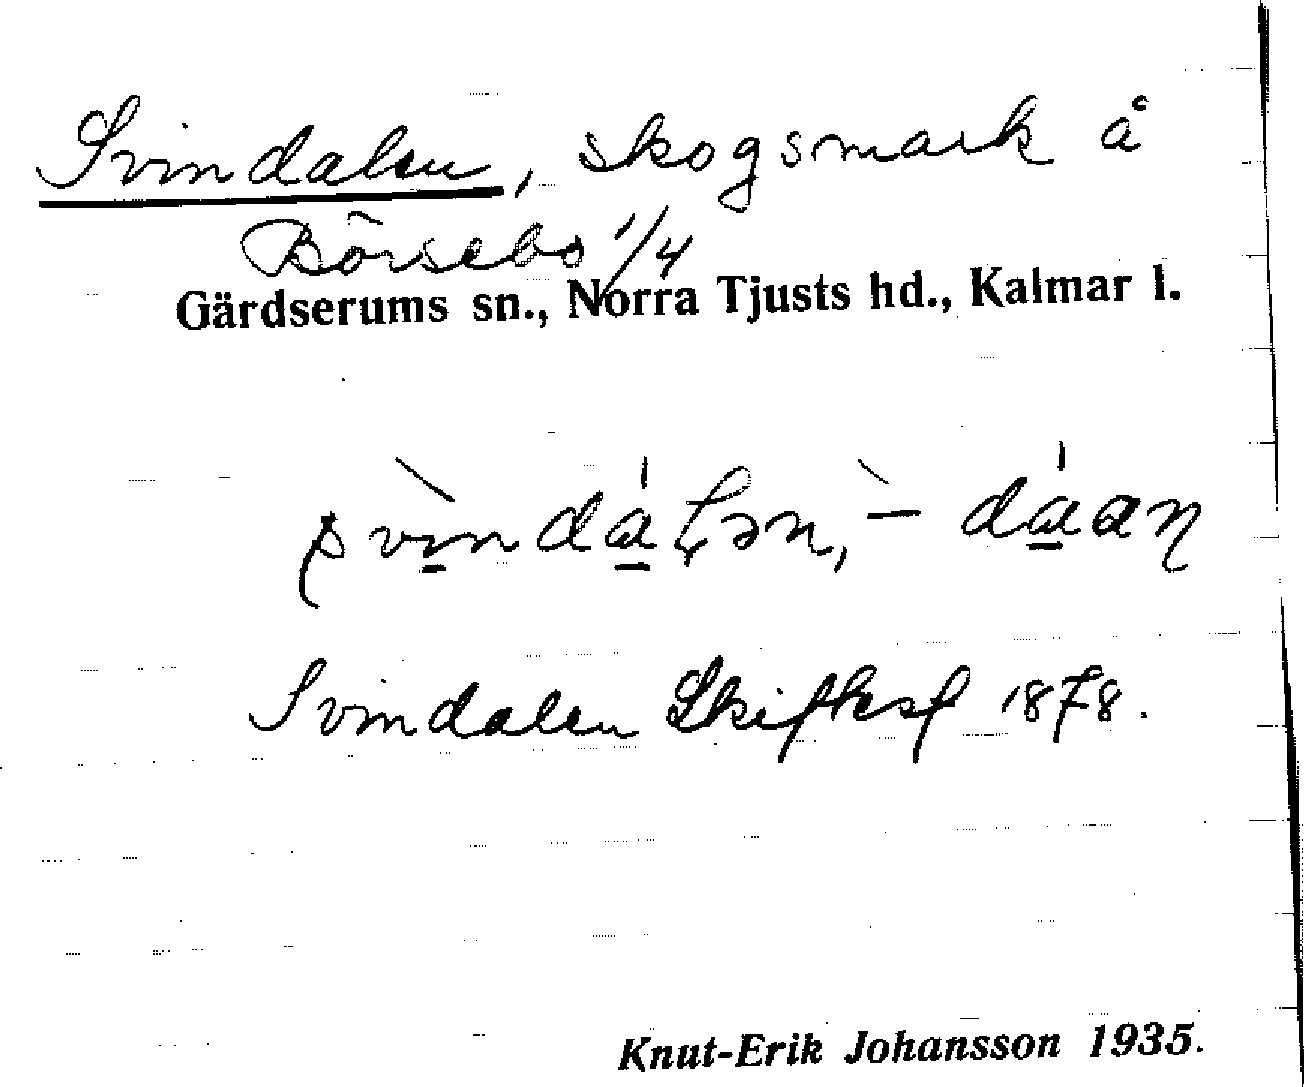 Svindalen, skogsmark å
Börsebo 1/4
Gärdserums sn., Norra Tjusts hd., Kalmar l.
Svindalen Skifteskf 1878.
Knut-Erik Johansson 1935.